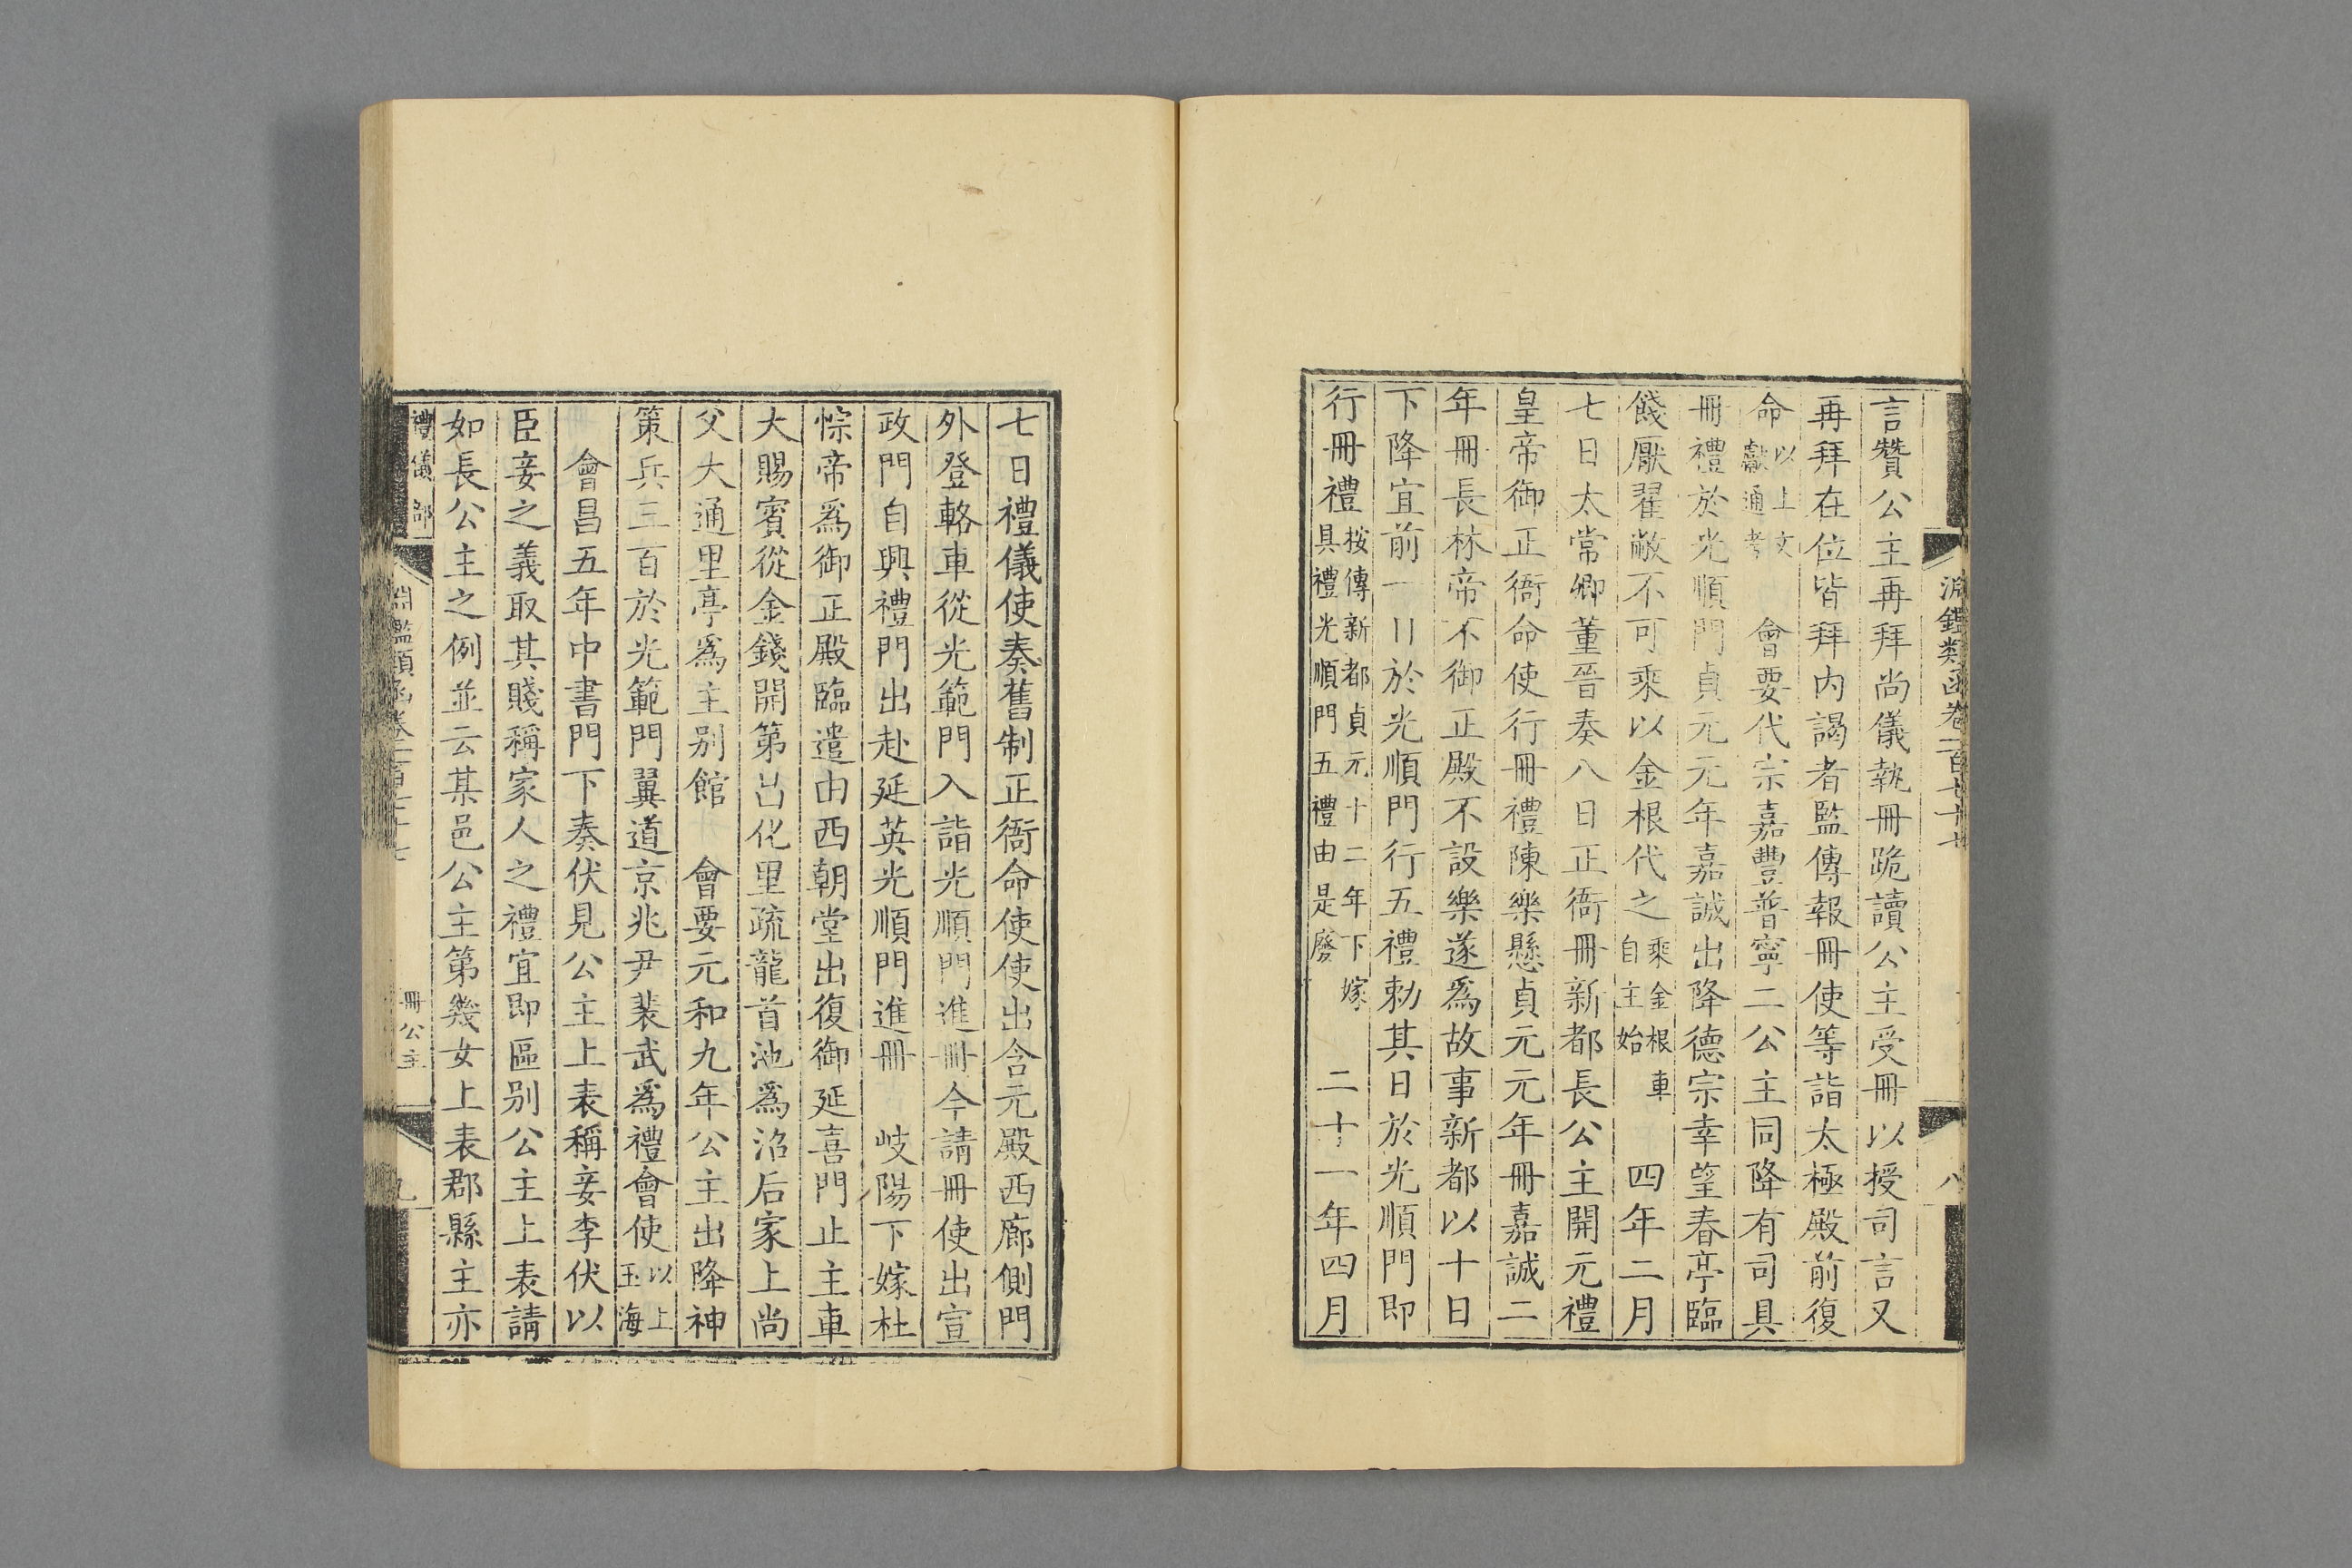 淵鑑類函卷一百七十七
八
言贊公主再拜尚儀執冊跪讀公主受冊以授司言又
再拜在位皆拜内謁者監傳報冊使等詣太極殿前復
命以上文獻通考 會要代宗嘉豐普寧二公主同降有司具
冊禮於光順門貞元元年嘉誠出降德宗幸望春亭臨
餞厭翟敝不可乘以金根代之乘金根車自主始 四年二月
七日太常卿董晉奏八日正衙冊新都長公主開元禮
皇帝御正衙命使行冊禮陳樂懸貞元元年冊嘉誠二
年冊長林帝不御正殿不設樂遂爲故事新都以十日
下降宜前一日於光順門行五禮勅其日於光順門即
行冊禮按傳新都貞元十二年下嫁具禮光順門五禮由是廢 二十一年四月
七日禮儀使奏舊制正衙命使使出含元殿西廊側門
外登輅車從光範門入詣光順門進冊今請冊使出宣
政門自興禮門出赴延英光順門進冊 岐陽下嫁杜
悰帝爲御正殿臨遣由西朝堂出復御延喜門止主車
大賜賓從金錢開第昌化里疏龍首池爲沼后家上尚
父大通里亭爲主别館 會要元和九年公主出降神
策兵三百於光範門翼道京兆尹裴武爲禮會使以上玉海
會昌五年中書門下奏伏見公主上表稱妾李伏以
臣妾之義取其賤稱家人之禮宜即區别公主上表請
如長公主之例並云某邑公主第幾女上表郡縣主亦
禮儀部
淵鑑類函卷一百七十七
冊公主
九